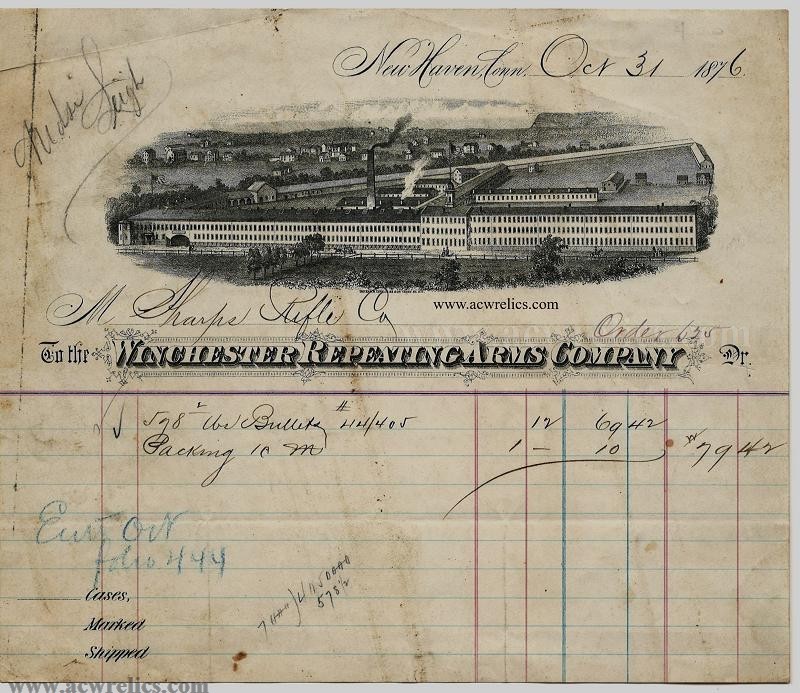 New Haven, Conn. Oct 31 1876
www.acwrelics.com
M Sharps Rifle Co
Order 625
To the WINCHESTER REPEATING ARMS COMPANY Dr.
578 2 lbs Bullets # 44/405 12 69 42
Packing 10 M 1 — 10 79 42
Oct
folio 444
578½
Cases,
Marked
Shipped
www.acwrelics.com